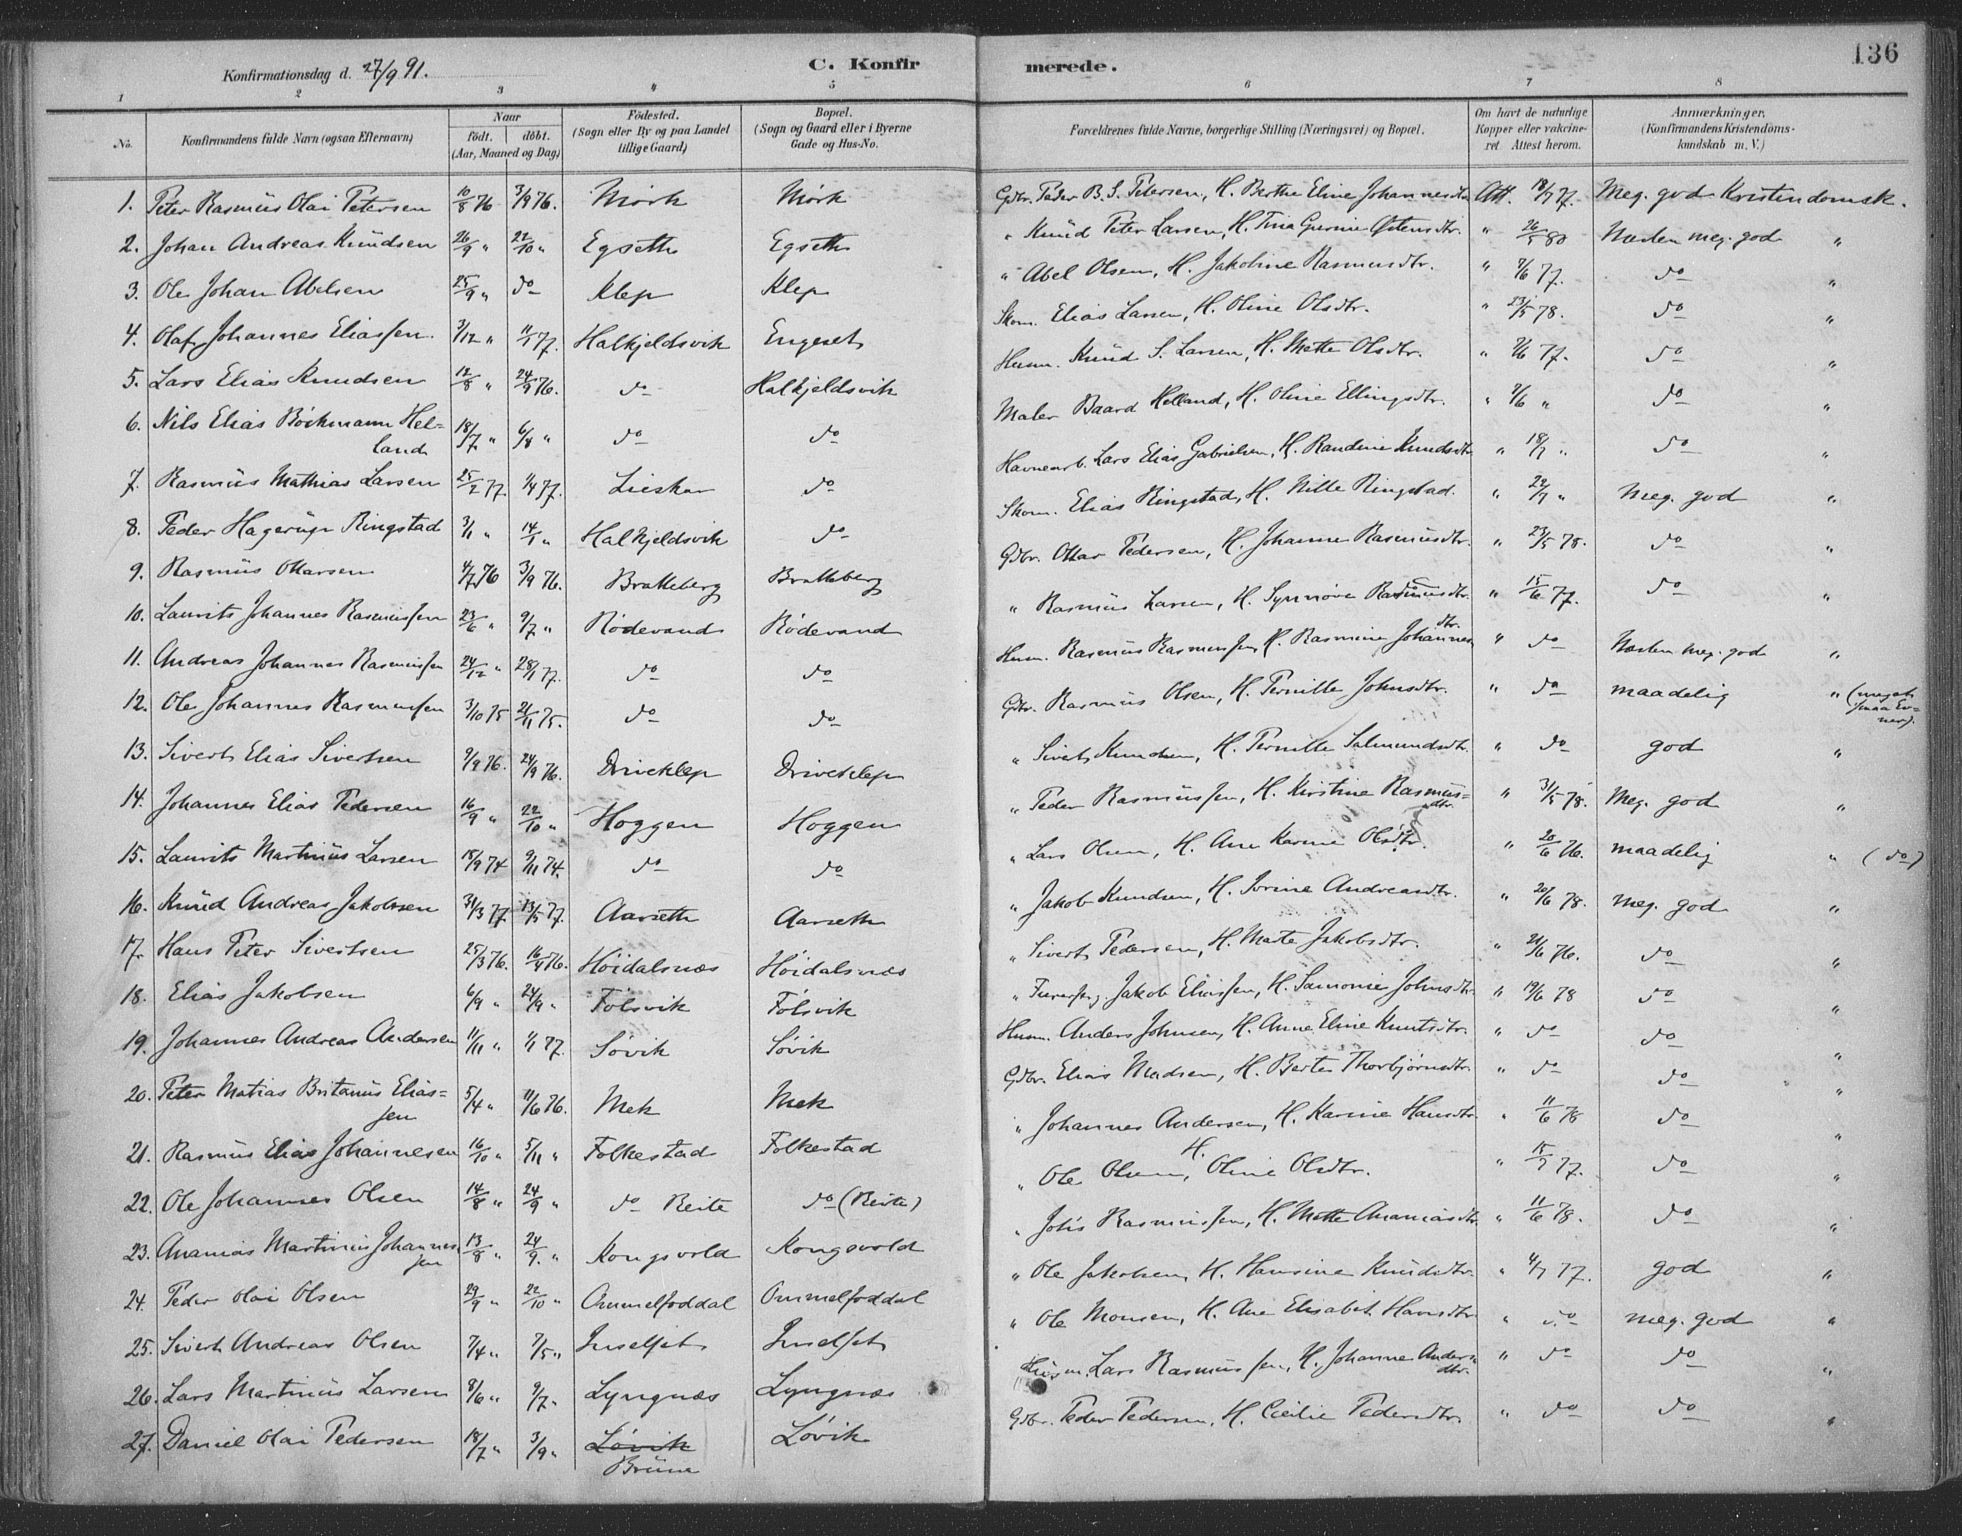 136
Konfirmationsdag d. 27/9 91. C. Konfirmerede.
1 2 3 4 5 6 7 8
No. Konfirmandens fulde Navn (ogsaa Efternavn) Naar födt. döbt. (Aar, Maaned og Dag) Födested. (Sogn eller By og paa Landet tillige Gaard) Bopæl. (Sogn og Gaard eller i Byerne Gade og Hus-No. Forældrenes fulde Navne, borgerlige Stilling (Næringsvei) og Bopæl. Om havt de naturlige Kopper eller vakcineret Attest herom. Anmærkninger. (Konfirmandens Kristendomskundskab m. V.)
1. Peter Rasmus Olai Petersen 10/8 76 3/9 76. Mörk Mörk Gdbr. Peder B. S. Petersen, H. Berthe Eline Johannesdtr. Att. 18/7 77. Meg. god Kristendomsk.
2. Johan Andreas Knudsen 26/9 " 22/10 " Egseth Egseth " Knud Peter Larsen, H. Tina Gurine Østensdtr. " 26/5 80 Næsten meg. god "
3. Ole Johan Abelsen 25/9 " do Klep Klep " Abel Olsen, H. Jakobine Rasmusdtr. " 7/6 77. do "
4. Olaf Johannes Eliassen. 3/12 " 11/1 77. Halkjeldsvik Engeset Skom. Elias Larsen, H. Oline Olsdtr. " 23/5 78. do "
5. Lars Elias Knudsen 12/8 " 24/9 76. do Halkjeldsvik Husm. Knud S. Larsen, H. Mette Olsdtr. " 7/6 77. do "
6. Nils Elias Böckmann Helland 18/7 " 6/8 " do do Maler Baard Helland, H. Oline Ellingsdtr. " 7/6 " do "
7. Rasmus Mathias Larsen 25/2 77. 1/4 77. Lieskar do Havnearb. Lars Elias Gabrielsen, H. Randine Knudsdtr. " 18/7 " do "
8. Peder Hagerup Ringstad 3/1 " 14/1 " Halkjeldsvik do Skom. Elias Ringstad, H. Nille Ringstad. " 22/7 " Meg. god "
9. Rasmus Ottarsen 4/7 76 3/9 76. Bratteberg Bratteberg Gdbr. Ottar Pedersen, H. Johanne Rasmusdtr. " 23/5 78. do "
10. Laurits Johannes Rasmussen 23/6 " 9/7 " Rödevand Rödevand " Rasmus Larsen, H. Synnöve Rasmusdtr. " 15/6 77. do "
11. Andreas Johannes Rasmussen 24/12 " 28/1 77. do do Husm. Rasmus Rasmussen, H. Rasmine Johannesdtr. " do Næsten meg. god "
12. Ole Johannes Rasmussen 3/10 75 21/11 75. do do Gdbr. Rasmus Olsen, H. Pernille Johnsdtr. " do maadelig " (meget smaa Evner).
13. Sivert Elias Sivertsen 9/9 76. 24/9 76. Driveklep Driveklep " Sivert Knudsen, H. Pernille Salmundsdtr. " do god "
14. Johannes Elias Pedersen 16/9 " 22/10 " Hoggen Hoggen " Peder Rasmussen, H. Kirstine Rasmusdtr. " 31/5 78. Meg. god "
15. Laurits Martinus Larsen 18/9 74 9/11 74. do do " Lars Olsen, H. Ane Karine Olsdtr. " 20/6 76. maadelig " (do)
16. Knud Andreas Jakobsen 31/3 77. 13/5 77. Aarseth Aarseth " Jakob Knudsen, H. Jorine Andreasdtr. " 20/6 78. meg. god "
17. Hans Peter Sivertsen 25/3 76. 16/4 76. Höidalsnæs Höidalsnæs " Sivert Pedersen, H. Marte Jakobsdtr. " 21/6 76. do "
18. Elias Jakobsen 6/9 " 24/9 " Fölsvik Fölsvik " Jakob Eliassen, H. Samonie Johnsdtr. " 19/6 78 do "
19. Johannes Andreas Andersen 11/11 " 1/1 77. Sövik Sövik Husm. Anders Johnsen, H. Anne Eline Knutsdtr. " do do "
20. Peter Matias Britanus Eliassen 5/4 " 11/6 76. Mek Mek Gdbr. Elias Madsen, H. Berte Thorbjörnsdtr. " do do "
21. Rasmus Elias Johannesen 16/10 " 5/11 " Folkestad Folkestad " Johannes Andersen, H. Karine Hansdtr. " 11/6 78 do "
22. Ole Johannes Olsen 14/8 " 24/9 " do Reite do (Reite) " Ole Olsen, H. Oline Olsdtr. " 15/7 77. do "
23. Ananias Martinus Johannessen 13/8 " 24/9. " Kongsvold Kongsvold " Johs Rasmussen, H. Mette Ananiasdtr. " 11/6 78. do "
24. Peder Olai Olsen 29/9 " 22/10 " Ommelfoddal Ommelfoddal " Ole Jakobsen, H. Hansine Knudsdtr. " 4/7 77. god "
25. Sivert Andreas Olsen 7/4 " 7/5 " Inselset Inselset " Ole Monsen, H. Ane Elisabet Hansdtr. " do meg. god "
26. Lars Martinus Larsen 8/6 " 9/7 " Lyngnæs Lyngnæs Husm. Lars Rasmussen, H. Johanne Andersdtr. " do do "
27. Daniel Olai Pedersen 18/7 " 3/9 " Lövik Brune Lövik Gdbr. Peder Pedersen, H. Cecilie Pedersdtr. " do do "